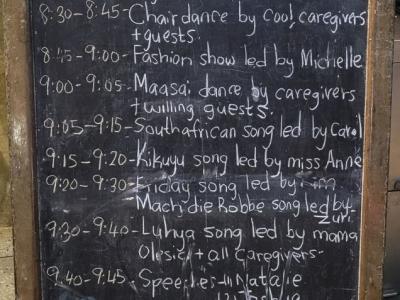 8:30-8:45-Chair dance by cool caregivers
+guests.
8:45-9:00-Fashion show led by Michelle
9:00-9:05-Maasai dance by caregivers
+willing guests.
9:05-9:15-Southafrican song led by Carol
9:15-9:20-Kikuyu song led by miss Anne
9:20-9:30-Friday song led by
Mach die Robbe song led by
Zuri.
9:30-9:40-Luhya song led by mama
+ all caregivers-
9.40-9:45-
Natalie